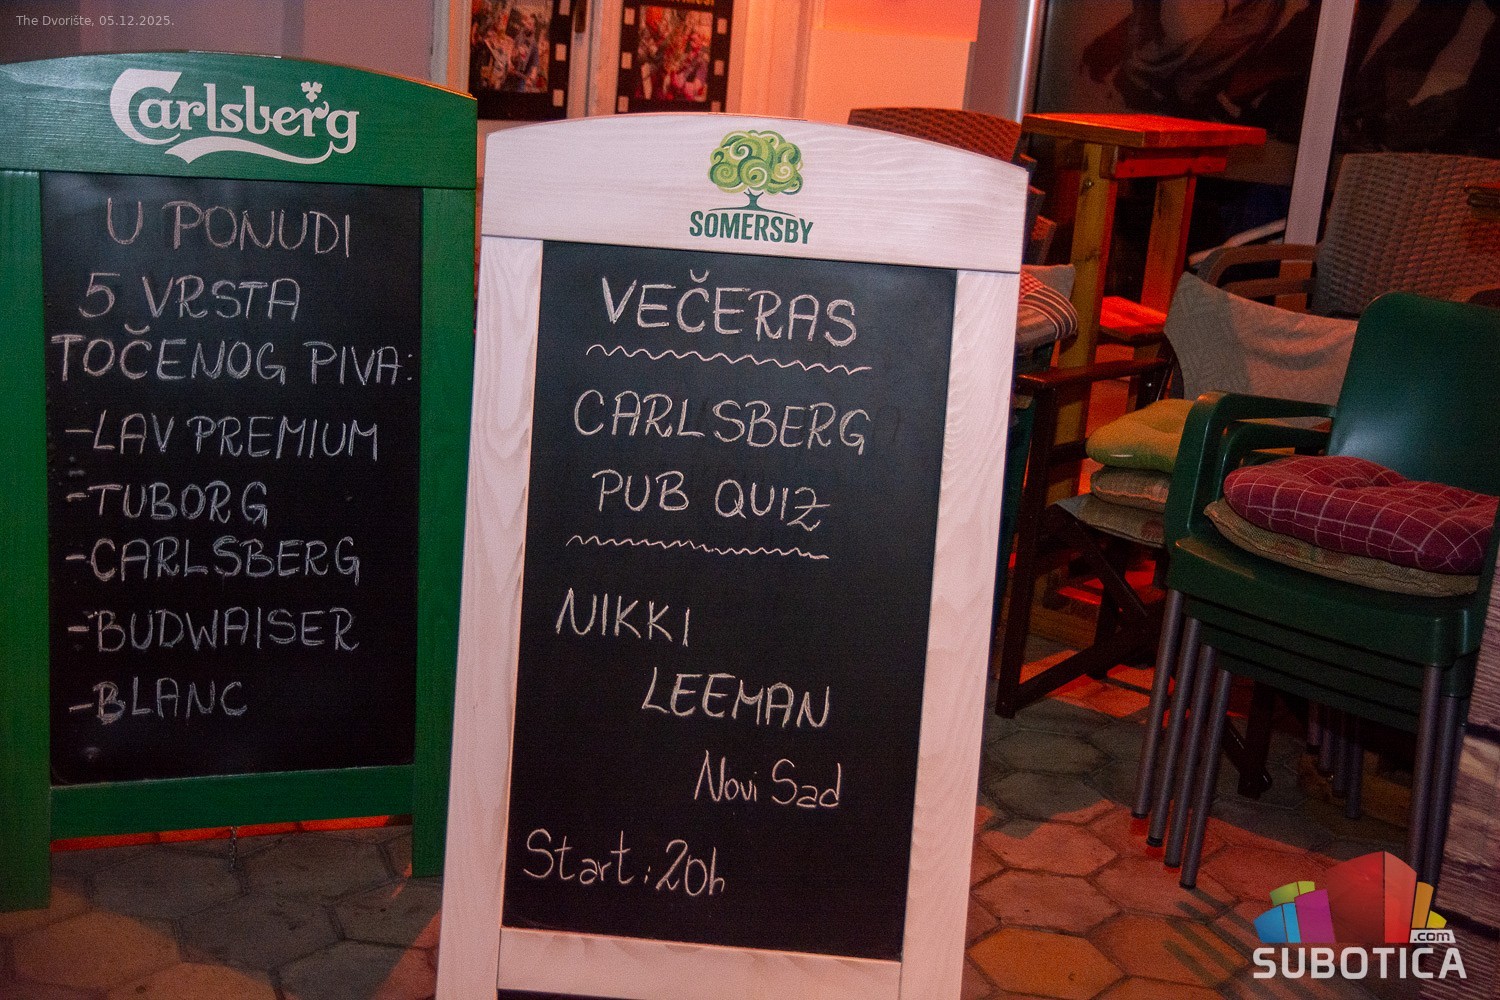 The Dvorište, 05.12.2025.
Carlsberg
U PONUDI
5 VRSTA
TOČENOG PIVA:
-LAV PREMIUM
-TUBORG
-CARLSBERG
-BUDWAISER
-BLANC
SOMERSBY
VEČERAS
CARLSBERG
PUB QUIZ
NIKKI
LEEMAN
Novi Sad
Start: 20h
.com
SUBOTICA